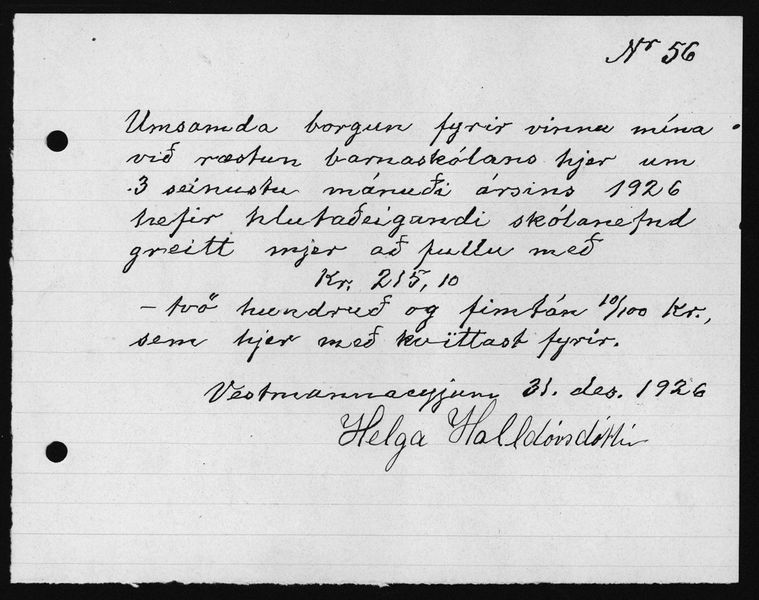 Nr 56
Umsamda borgun fyrir vinnu mína
við ræstun barnaskólans hjer um
3 seinustu mánuði ársins 1926
hefir hlutaðeigandi skólanefnd
greitt mjer að fullu með
Kr. 215,10
– tvö hundruð og fimtán 10/100 Kr.,
sem hjer með kvittast fyrir.
Vestmannaeyjum 31. des. 1926
Helga Halldórsdóttir